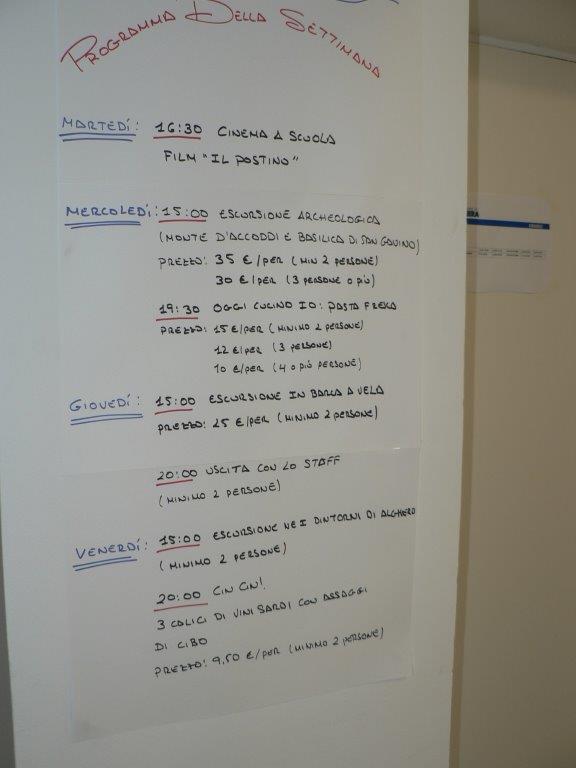 PROGRAMMA DELLA SETTIMANA
MARTEDÍ: 16:30 CINEMA A SCUOLA
FILM "IL POSTINO"
MERCOLEDÍ: 15:00 ESCURSIONE ARCHEOLOGICA
(MONTE D'ACCODDI E BASILICA DI SAN GAVINO)
PREZZO: 35 €/PER (MIN 2 PERSONE)
30 €/PER (3 PERSONE O PIÙ)
19:30 OGGI CUCINO IO: PASTA FRESCA
PREZZO: 15 €/PER (MINIMO 2 PERSONE)
12 €/PER (3 PERSONE)
10 €/PER (4 O PIÙ PERSONE)
GIOVEDÍ: 15:00 ESCURSIONE IN BARCA A VELA
PREZZO: 25 €/PER (MINIMO 2 PERSONE)
20:00 USCITA CON LO STAFF
(MINIMO 2 PERSONE)
VENERDÍ: 15:00 ESCURSIONE NEI DINTORNI DI ALGHERO
(MINIMO 2 PERSONE)
20:00 CIN CIN!
3 CALICI DI VINI SARDI CON ASSAGGI
DI CIBO
PREZZO: 9,50 €/PER (MINIMO 2 PERSONE)